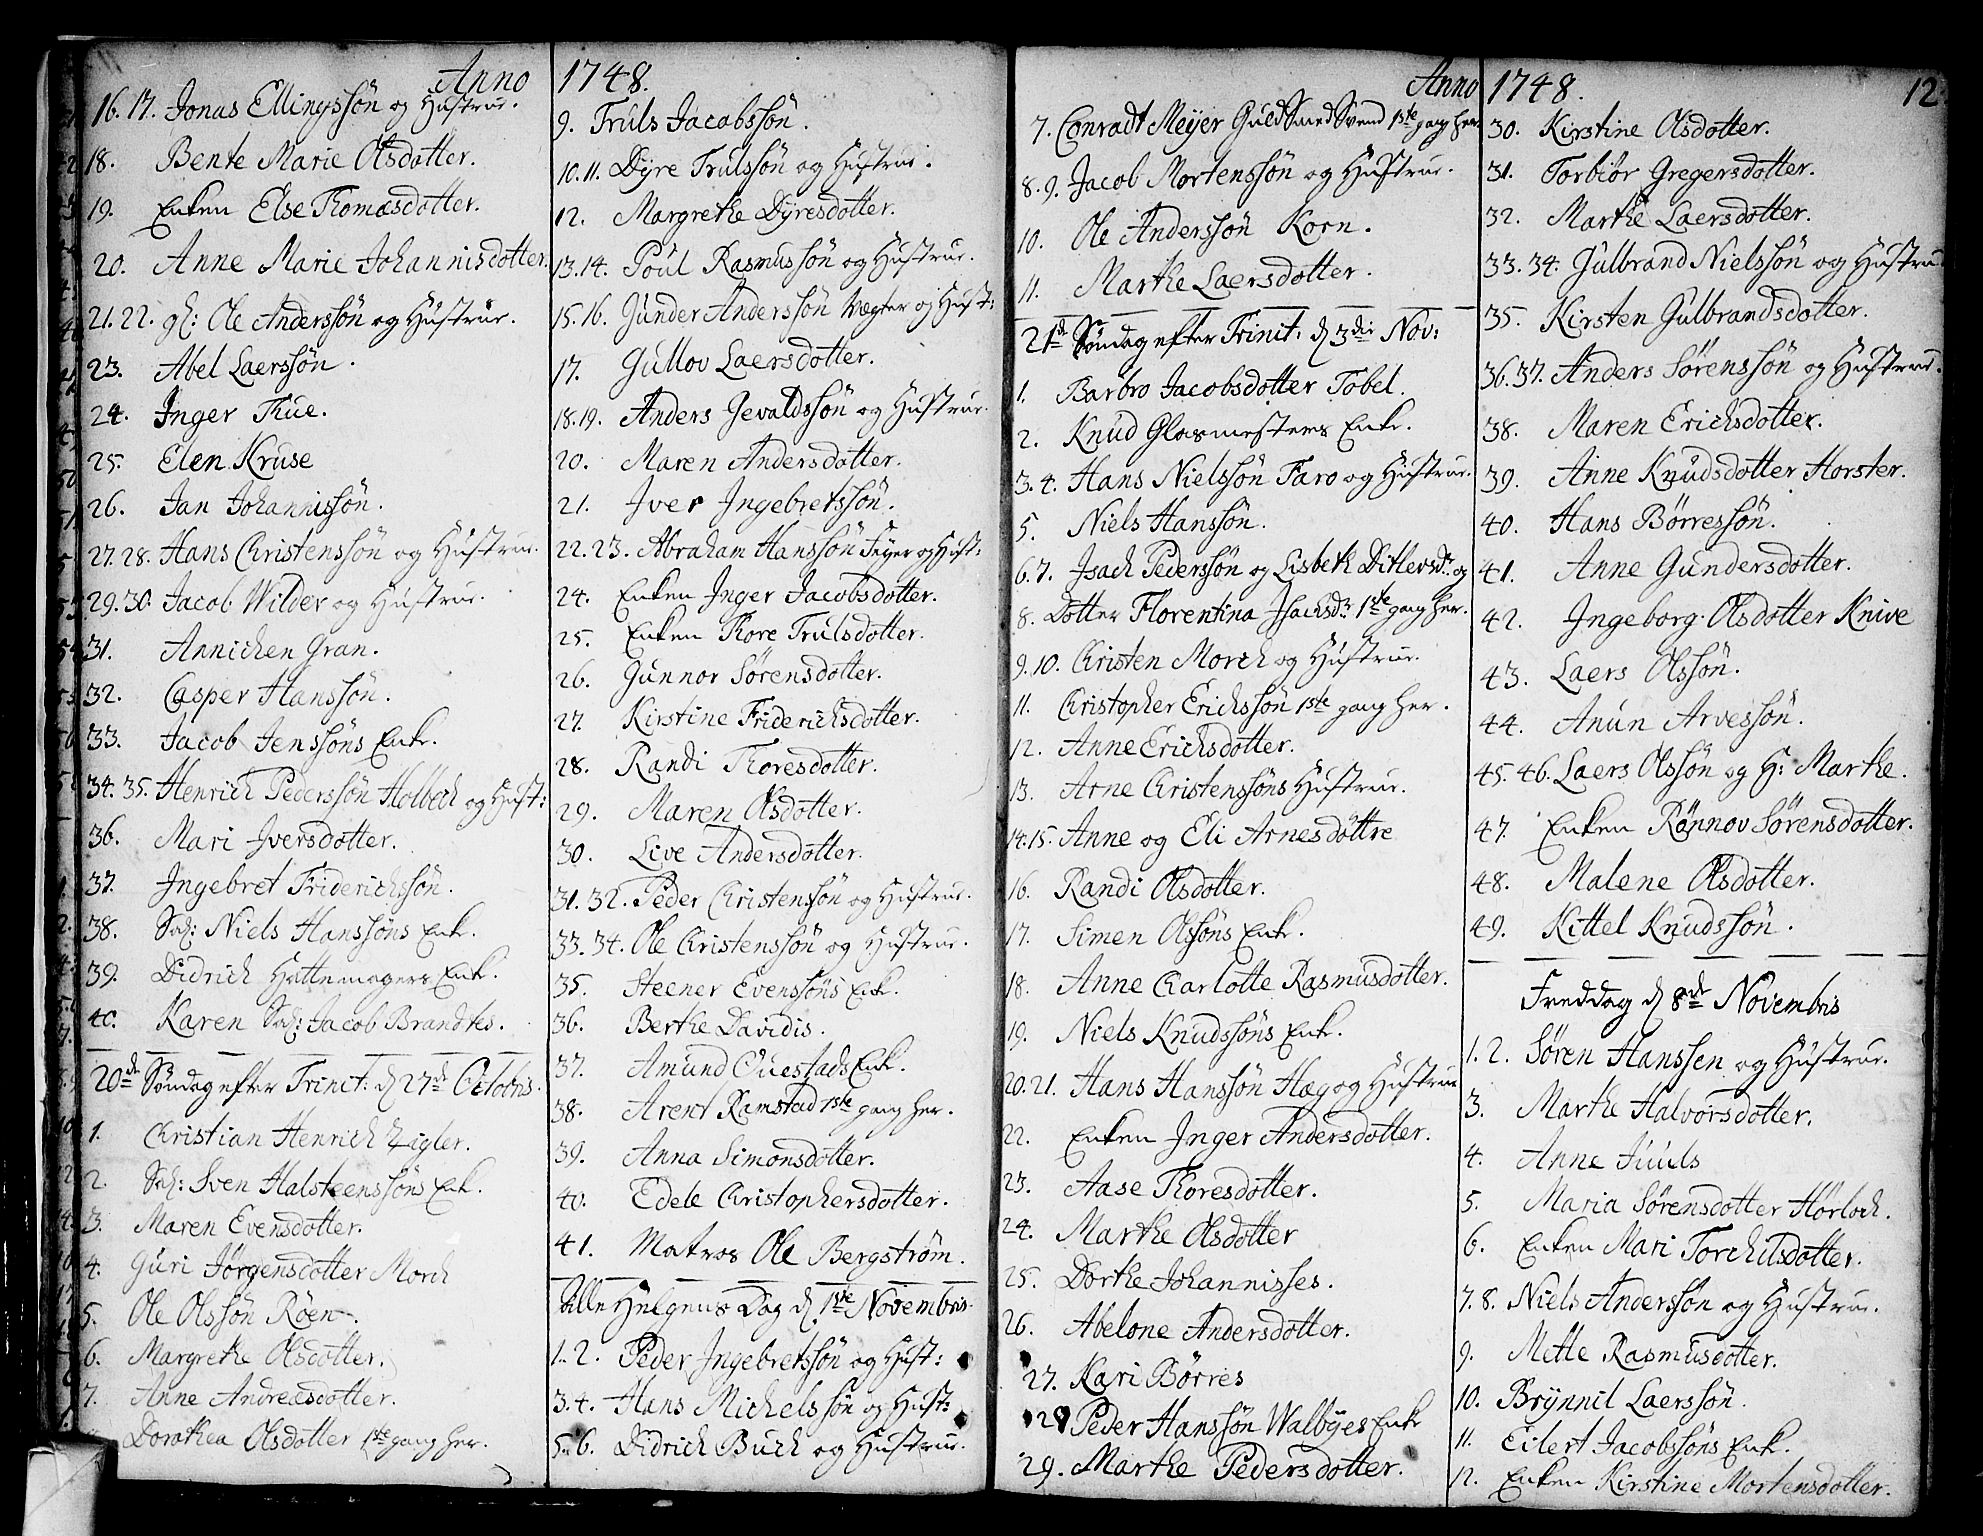 Anno
16. 17. Jonas Ellingssön og Hustrue.
18. Bente Marie Olsdotter.
19. Enken Else Thomasdotter.
20. Anne Marie Johannisdotter.
21. 22. gl: Ole Anderssön og Hustrue.
23. Abel Laerssön.
24. Inger Thue.
25. Elen Kruse
26. Jan Johannissön.
27. 28. Hans Christenssön og Hustrue.
29. 30. Jacob Wilder og Hustrue.
31. Annichen Gran.
32. Casper Hanssön.
33. Jacob Jenssöns Enke.
34. 35. Henrich Pederssön Holbech og Hust:
36. Mari Iversdotter.
37. Ingebret Friderichssön.
38. Sal: Niels Hanssöns Enk.
39. Didrich Hattemagers Enk.
40. Karen Sal: Jacob Brandtes.
20de Söndag efter Trinit: d 27de Octobris.
1. Christian Henrich Zigler.
2. Sal: Sven Halsteenssöns Enk.
3. Maren Evensdotter.
4. Guri Jörgensdotter Morch
5. Ole Olssön Röen.
6. Margrethe Olsdotter.
7. Anne Andreasdotter.
Dorothea Olsdotter 1ste gang her.
1748.
9. Truls Jacobssön.
10. 11. Dyre Trulssön og Hustrue.
12. Margrethe Dyresdotter.
13. 14. Poul Rasmussön og Hustrue.
15. 16. Gunder Anderssön Vægter og Hust:
17. Gullov Laersdotter.
18. 19. Anders Gevaldssön og Hustrue.
20. Maren Andersdotter.
21. Iver Ingebretssön.
22. 23. Abraham Hanssön Feyer og Hust:
24. Enken Inger Jacobsdotter.
25. Enken Thore Trulsdotter.
26. Gunnor Sörensdotter.
27. Kirstine Friderichsdotter.
28. Randi Thoresdotter.
29. Maren Olsdotter.
30. Live Andersdotter.
31. 32. Peder Christenssön og Hustrue.
33. 34. Ole Christenssön og Hustrue.
35. Steener Evenssöns Enk.
36. Berthe Davidis.
37. Amund Ouestads Enk.
38. Arent Ramstad 1ste gang her.
39. Anna Simonsdotter.
40. Edele Christophersdotter.
41. Matros Ole Bergström.
Alle Helgens Dag d 1ste Novembris.
1. 2. Peder Ingebretssön og Hust:
3. 4. Hans Michelssön og Hust:
5. 6. Didrich Buch og Hustrue.
Anno
7. Conradt Meyer Guld Smed Svend 1ste gang her.
8. 9. Jacob Mortenssön og Hustrue.
10. Ole Anderssön Korn.
11. Marthe Laersdotter.
21de Söndag efter Trinit: d 3die Nov:
1. Barbro Jacobsdotter Tobel.
2. Knud Glasmesters Enke.
3. 4. Hans Nielssön Faro og Hustrue.
5. Niels Hanssön.
6. 7. Isach Pederssön og Lisbeth Ditlevsdr. og
8. Dotter Florentina Isachsdr. 1ste gang her.
9. 10. Christen Morch og Hustrue.
11. Christopher Erichssön 1ste gang her.
12. Anne Erichsdotter.
13. Arne Christenssöns Hustrue.
14. 15. Anne og Eli Arnesdöttre
16. Randi Olsdotter.
17. Simen Olssöns Enk.
18. Anne Charlotte Rasmusdotter.
19. Niels Knudssöns Enk.
20. 21. Hans Hanssön Hæg og Hustrue
22. Enken Inger Andersdotter.
23. Aase Thoresdotter.
24. Marthe Olsdotter
25. Dorthe Johannisses.
26. Abelone Andersdotter.
27. Kari Börres
29 Peder Hanssön Walbyes Enke
29. Marthe Pedersdotter.
1748. 12
30. Kirstine Olsdotter.
31. Torbiör Gregersdotter.
32. Marthe Laersdotter.
33. 34. Gulbrand Nielssön og Hustrue
35. Kirsten Gulbrandsdotter.
36. 37. Anders Sörenssön og Hustrue.
38. Maren Erichsdotter.
39. Anne Knudsdotter Horster.
40. Hans Börressön.
41. Anne Gundersdotter.
42. Ingeborg Olsdotter Knive
43. Laers Olssön.
44. Anun Arvessön.
45. 46. Laers Olssön og H: Marthe.
47. Enken Rönnov Sörensdotter.
48. Malene Olsdotter.
49. Kittel Knudssön.
Freddag d 8de Novembris
1. 2. Sören Hanssen og Hustrue.
3. Marthe Halvorsdotter.
4. Anne Juuls
5. Maria Sörensdotter Hörloch.
6. Enken Mari Torchilsdotter.
7. 8. Niels Anderssön og Hustrue.
9. Mette Rasmusdotter.
10. Brynnil Laerssön.
11. Eilert Jacobssöns Enk.
12. Enken Kirstine Mortensdotter.